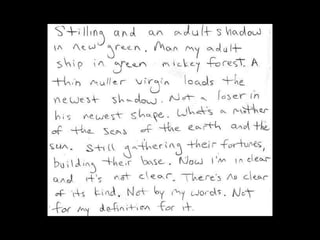 Stilling and an adult shadow
in new green. Man my adult
ship in green mickey forest. A
thin muller virgin loads the
newest shadow. Not a loser in
his newest shape. What's a mother
of the seas of the earth and the
sun. Still gathering their fortunes,
building their base. Now I'm in clear
and it's not clear. There's no clear
of its kind. Not by my words. Not
for my definition for it.